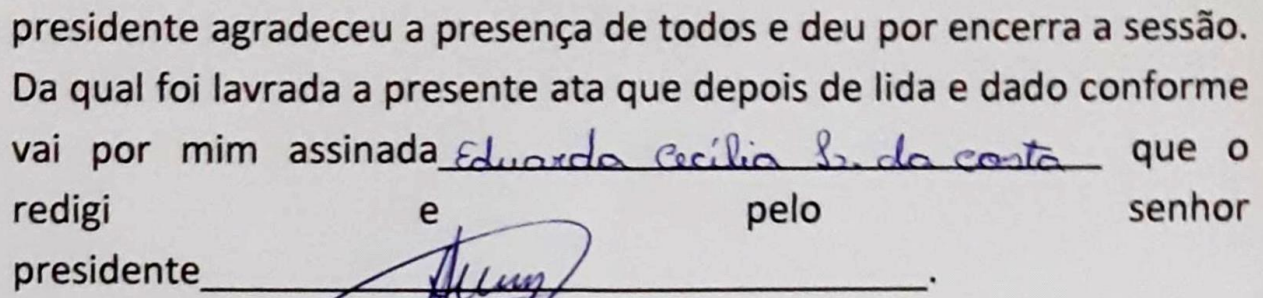 presidente agradeceu a presença de todos e deu por encerra a sessão.
Da qual foi lavrada a presente ata que depois de lida e dado conforme
vai por mim assinada Eduarda Cecília da costa que o
redigi e pelo senhor
presidente_______________.